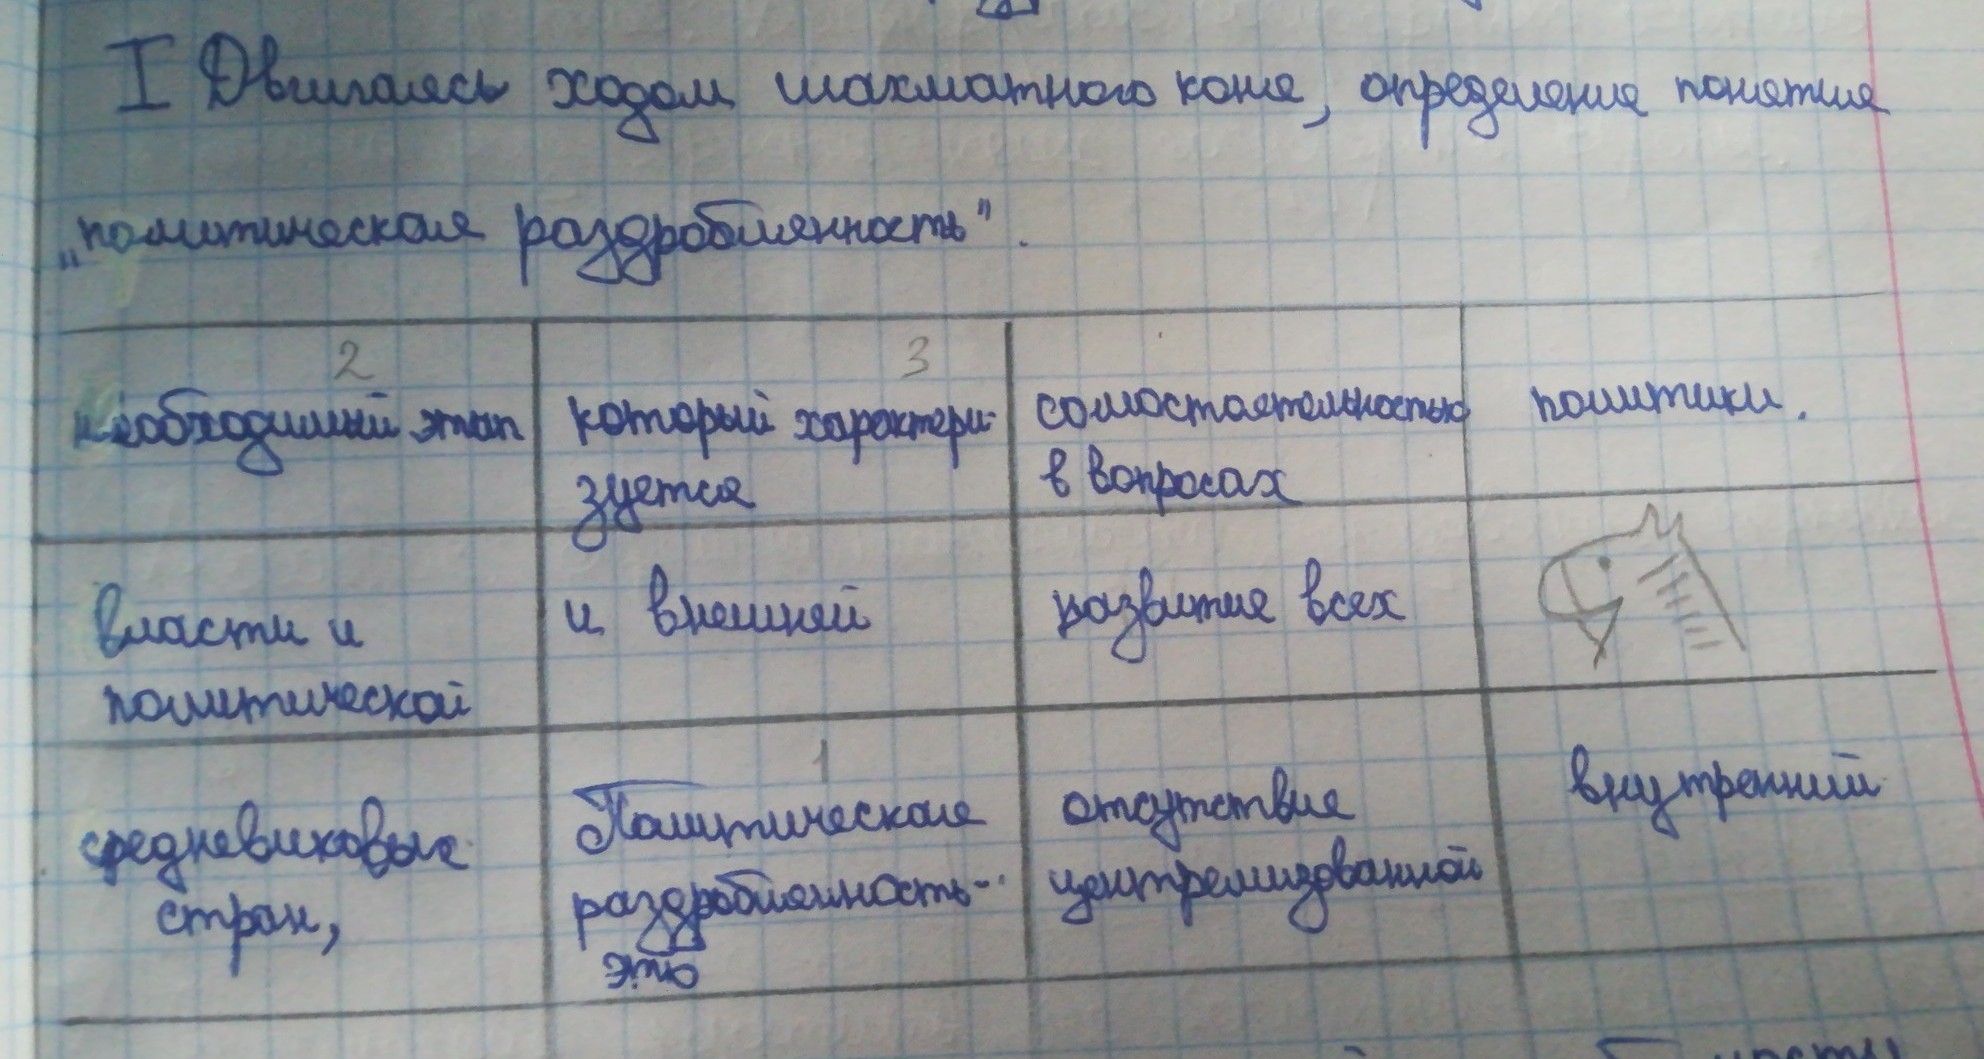 I Двигаясь ходом шахматного коня, определение понятия
"политическая раздробленность".
2
3
необходимый этап
который характери-
зуется
самостоятельностью
в вопросах
политики.
власти и
политической
и внешней
развитие всех
1
средневиковых
стран,
Политическая
раздробленность-
это
отсутствие
центрелизованной
внутренний